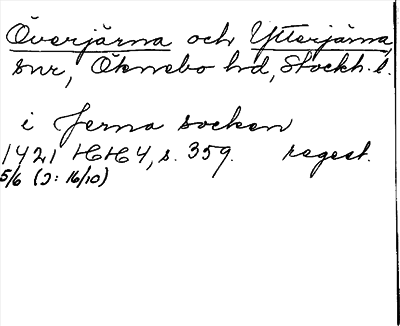 Överjärna och Ytterjärna,
snr, Öknebo hd, Stockh. l.
i Jerna socken
1421 HH 4, s. 359. regest.
5/6 (J: 16/10)